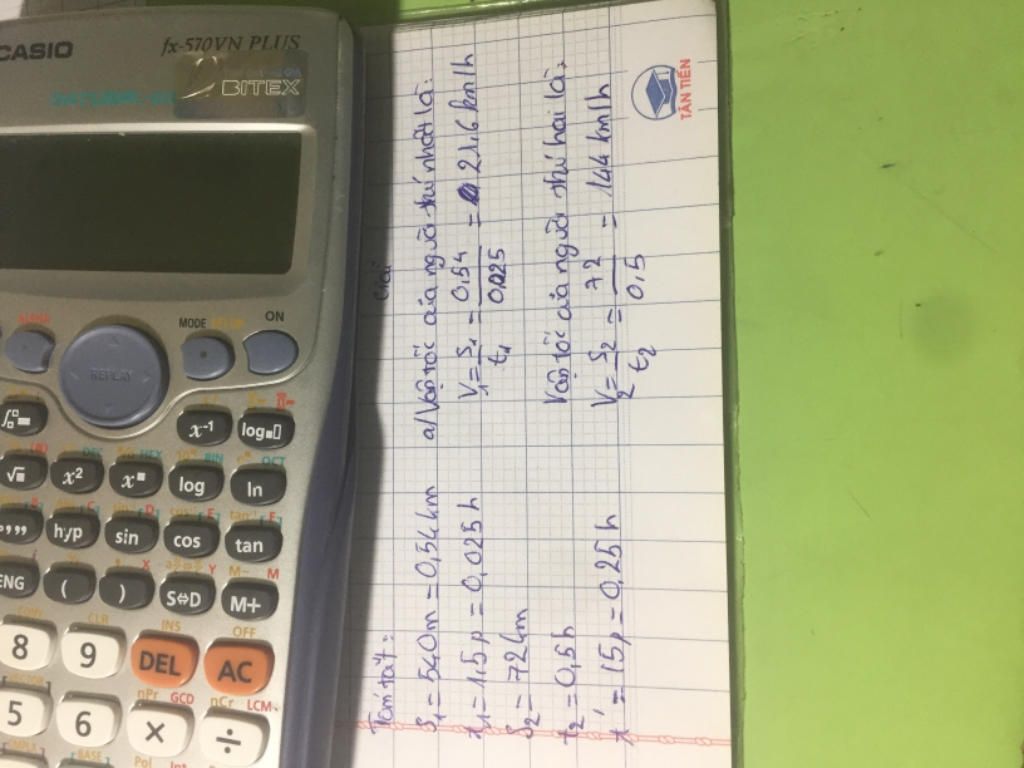 CASIO
fx-570VN PLUS
BITEX
ALPHA
MODE SETUP
ON
REPLAY
x⁻¹
log
√
x²
x
log
ln
hyp
sin
cos
tan
ENG
(
)
S⇔D
M+
8
9
DEL
AC
5
6
×
÷
INS
OFF
nPr GCD
nCr LCM
CLR
BIN
OCT
Pol
Tóm tắt:
S₁ = 540m = 0,54km
t₁ = 1,5p = 0,025h
S₂ = 72km
t₂ = 0,5h
t' = 15p = 0,25h
Giải
a/ Vận tốc của người thứ nhất là:
V₁ = S₁/t₁ = 0,54/0,025 = 21,6 km/h
Vận tốc của người thứ hai là:
V₂ = S₂/t₂ = 72/0,5 = 144 km/h
TÂN TIẾN